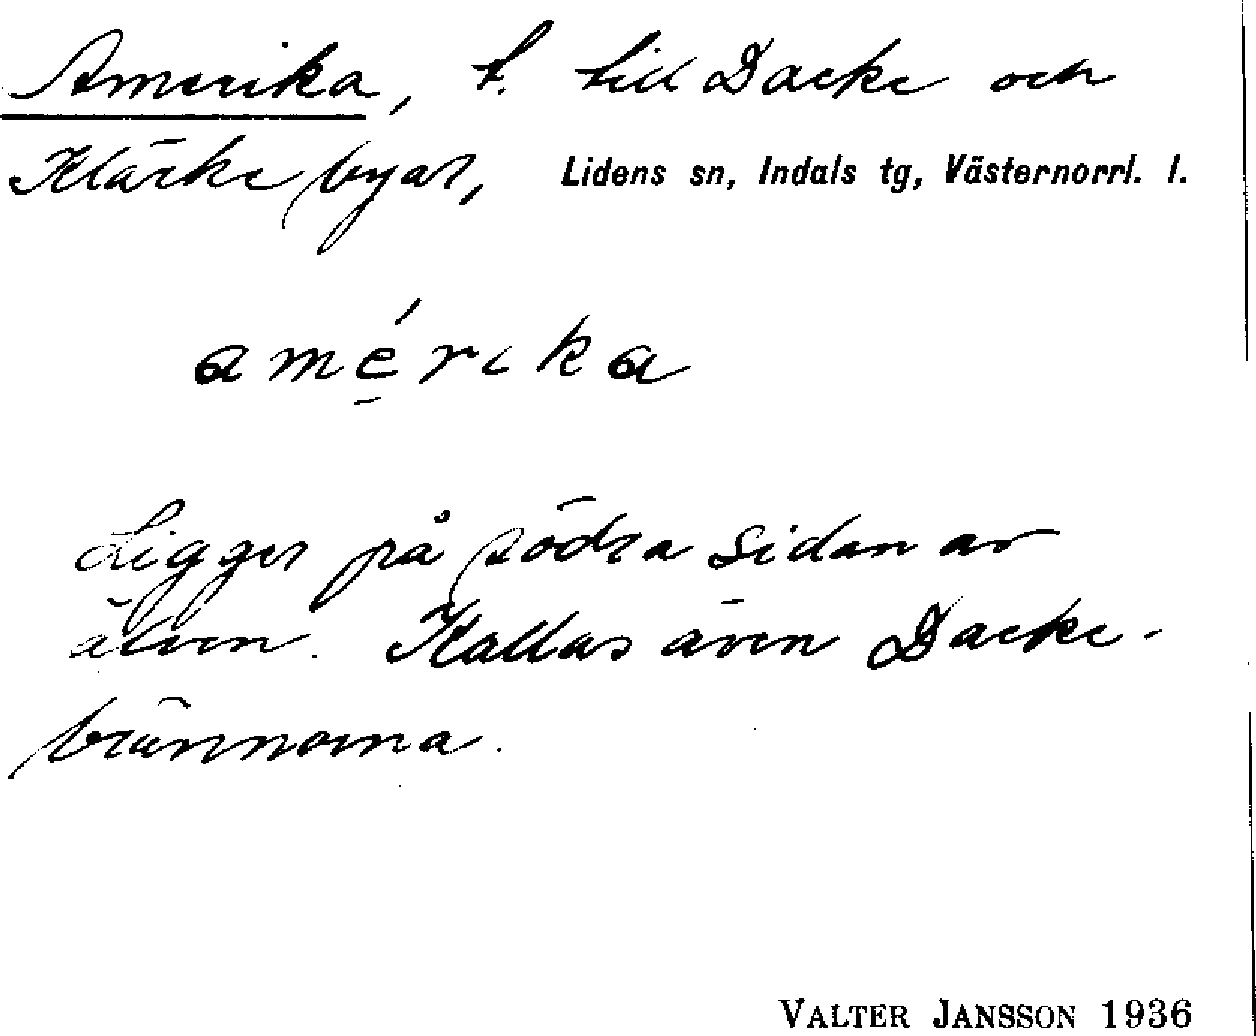 Amerika, t. till Dacke och
Kläcke byar, Lidens sn, Indals tg, Västernorrl. l.
amérika
Ligger på södra sidan av
älven. Kallas även Dacke-
brännorna.
VALTER JANSSON 1936